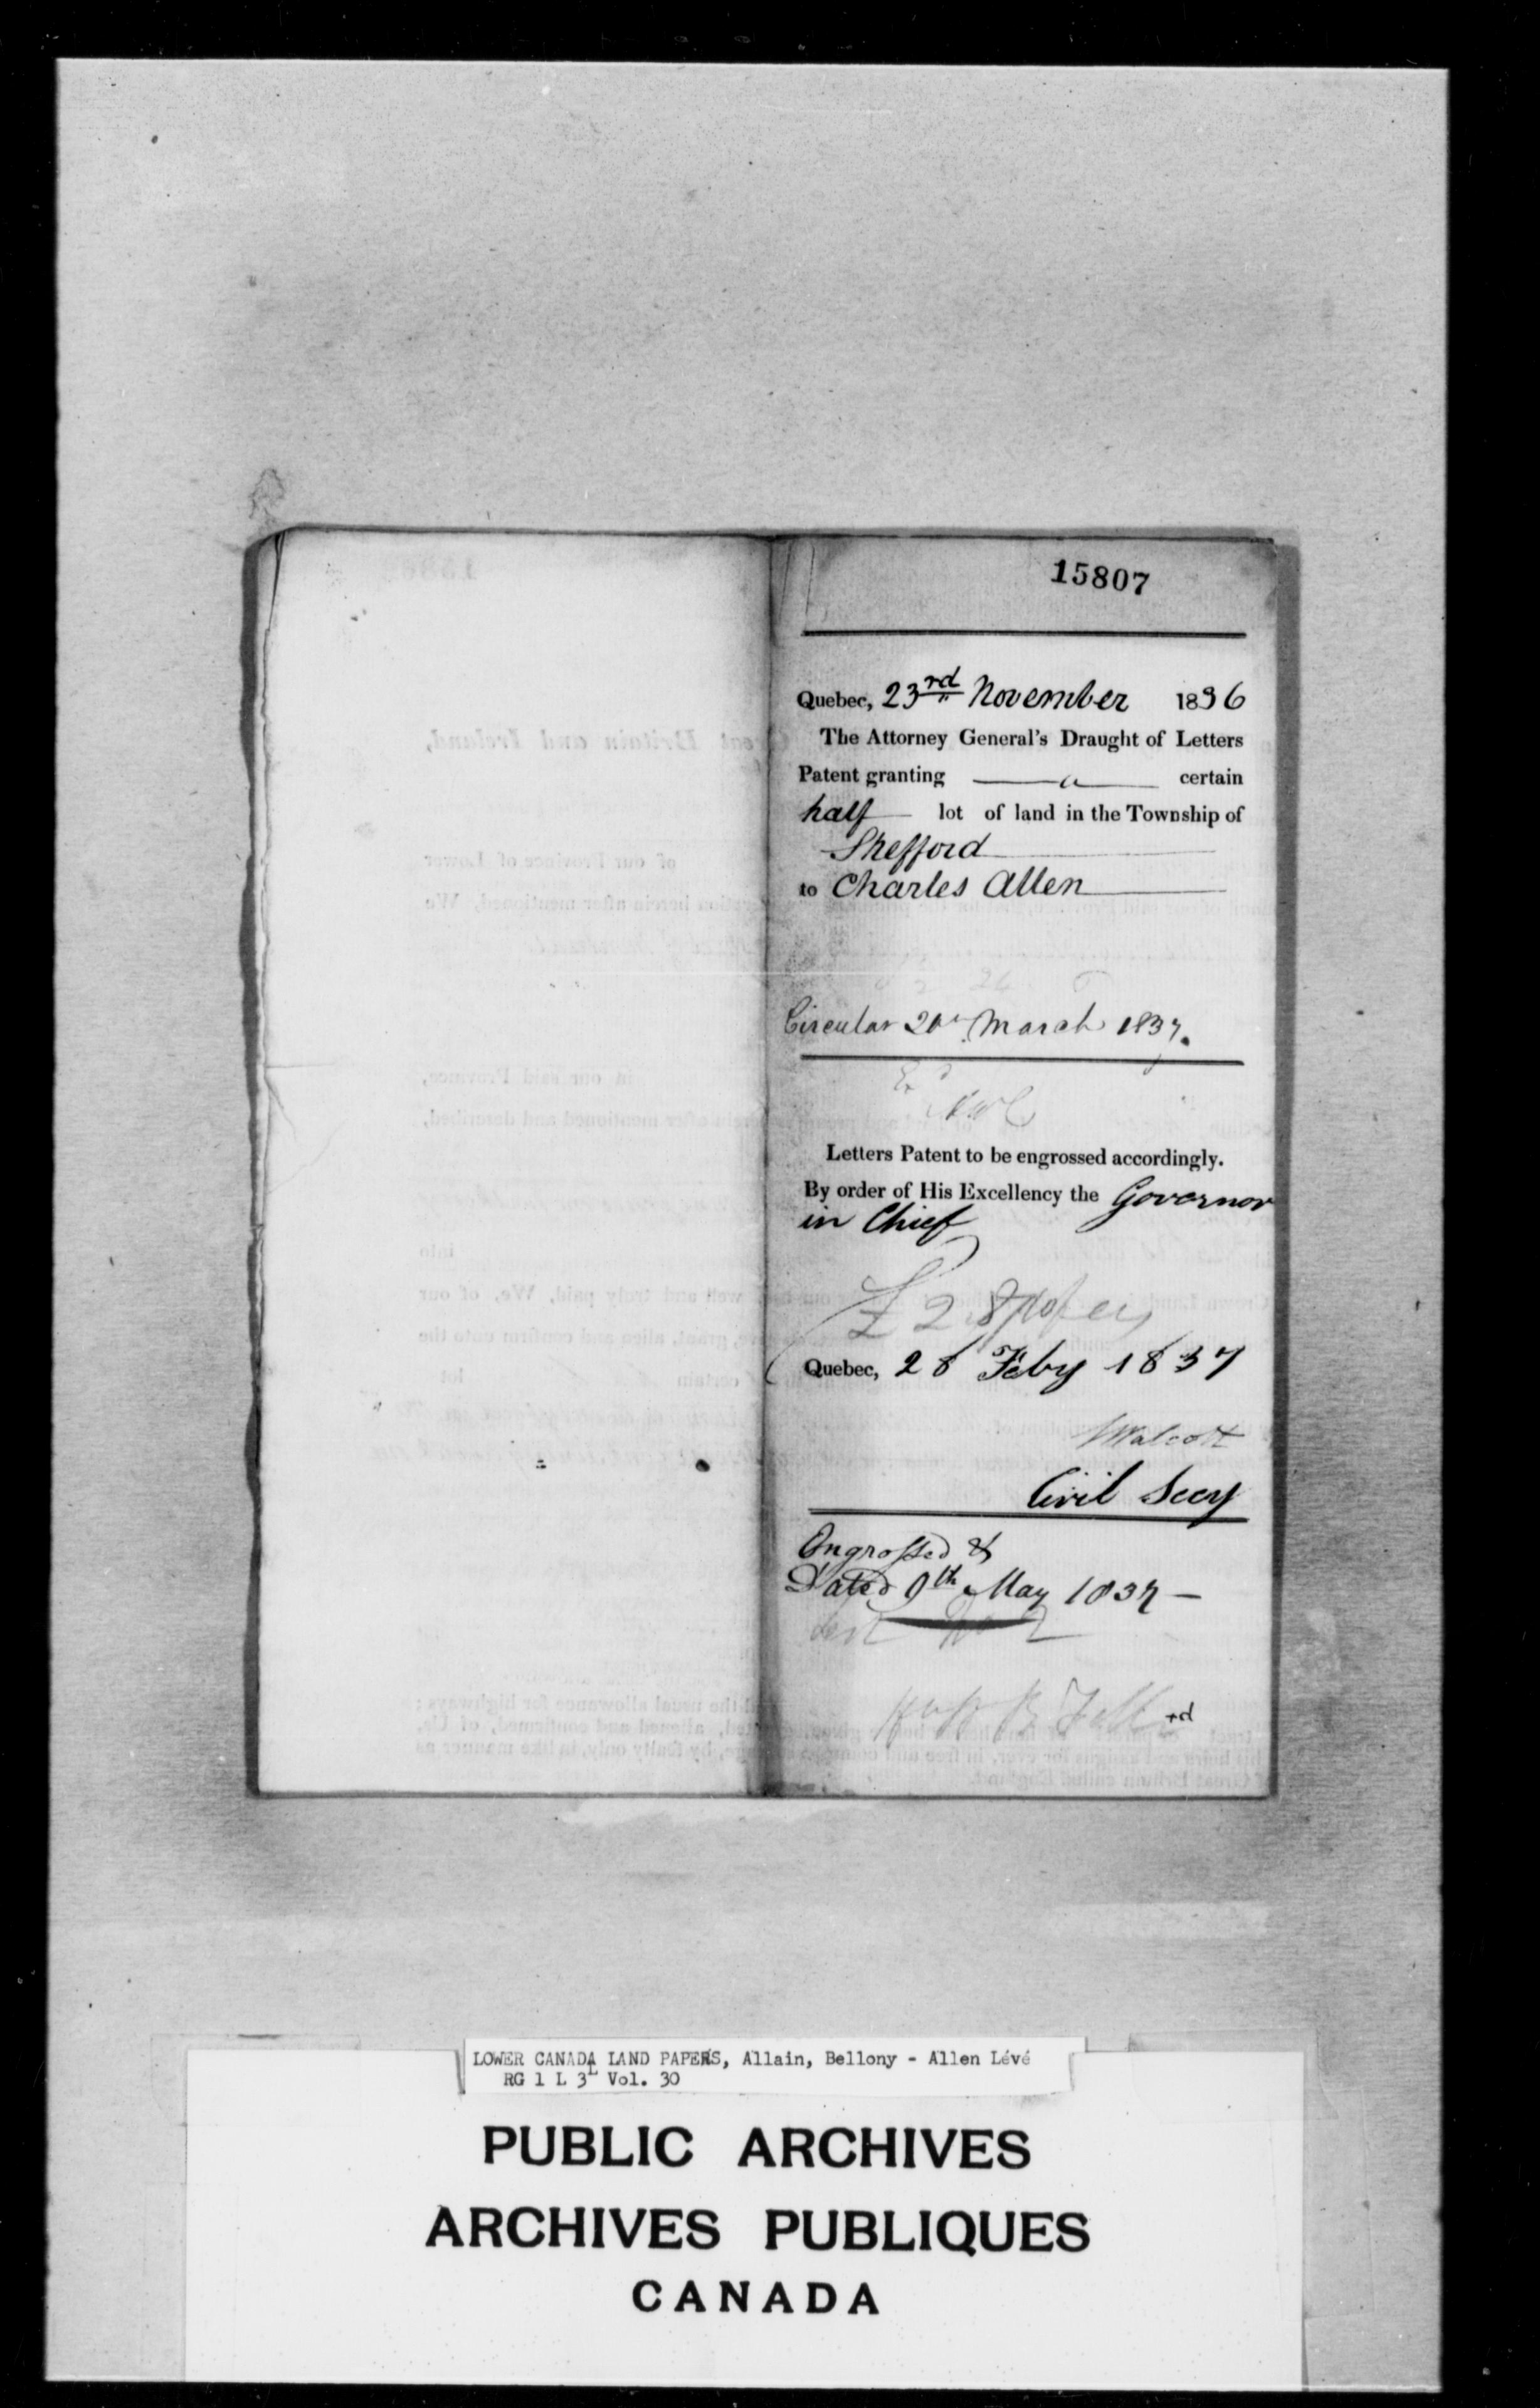 15807
Quebec, 23rd November 1836
The Attorney General's Draught of Letters
Patent granting a certain
half lot of land in the Township of
Shefford
to Charles Allen
Circular 20th March 1837.
Letters Patent to be engrossed accordingly.
By order of His Excellency the Governor
in Chief
Quebec, 28 Feby 1837
Walcott
Civil Secy
Engrossed &
Dated 9th May 1837 —
LOWER CANADA LAND PAPERS, Allain, Bellony - Allen Lévé
RG 1 L 3L Vol. 30
PUBLIC ARCHIVES
ARCHIVES PUBLIQUES
CANADA